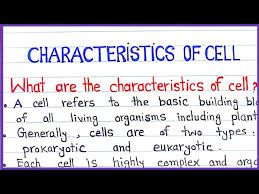 CHARACTERISTICS OF CELL
What are the characteristics of cell?
• A cell refers to the basic building
of all living organisms including
• Generally, cells are of two types:
prokaryotic and eukaryotic.
• Each cell is highly complex and